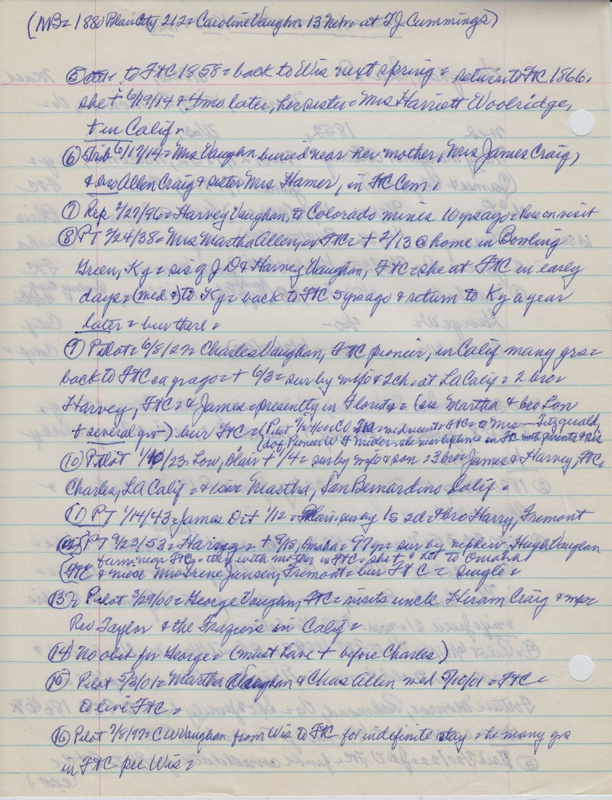 (NB= 1880 Blair City 212= Caroline Vaughn 13 Nebr at T J Cummings)
⑤ , to FtC 1858= back to Wis next spring= return to FtC 1866,
she + 6/19/14 & 4 mo later, her sister= Mrs Harriett Woolridge,
+ in Calif.
⑥ Trib 6/19/14= Mrs Vaughn buried near her mother, Mrs James Craig,
& bro Allen Craig & sister Mrs Hamer, in FtC Cem=
⑦ Rep 2/27/96= Harvey Vaughn, to Colorado mines 10 yrs ago= here on visit
⑧ PT 2/24/38= Mrs Martha Allen, ex FtC= + 2/13 @ home in Bowling
Green, Ky= sis of J D & Harvey Vaughan, FtC= she at FtC in early
days= (med &) to Ky= back to FtC 5 yrs ago & return to Ky a year
later= bur there=
⑨ Pilot= 6/8/27= Charles Vaughan, FtC pioneer, in Calif many yrs=
back to FtC ca yr ago= + 6/3= sur by wife & 2 ch at LA Calif= 2 bro=
Harvey, FtC= & James= presently in Florida= (sis Martha & bro Lon
+ several yr) bur FtC= (Pilot
⑩ Pilot 1/10/23= Low, Blair + 1/4= sur by wife & son= 3 bro= James & Harvey, FtC,
Charles, LA Calif= & 1 sis= Martha, San Bernardino Calif=
⑪ PT 1/14/43= James D + 1/12= Blair= sur by 1 s 2 d & bro Harry, Fremont
⑫ PT 9/23/53= Harvey= + 9/18, Omaha= 97 yr= sur by nephew Hugh Vaughan
born near FtC= then with mother in FtC= she + & he to Omaha
FtC & niece Mrs Irene Jansen, Fremont= bur FtC= single=
⑬ Pilot 3/29/00= George Vaughn, FtC= visits uncle Hiram Craig &
Rev Taylor & the Fraziers in Calif=
⑭ No obit for George= (must have + before Charles)
⑮ Pilot 5/23/01= Martha Vaughan & Chas Allen med 5/10/01= FtC=
to live FtC=
⑯ Pilot 7/8/97= C W Vaughan from Wis to FtC for indefinite stay= he many yrs
in FtC pre Wis=